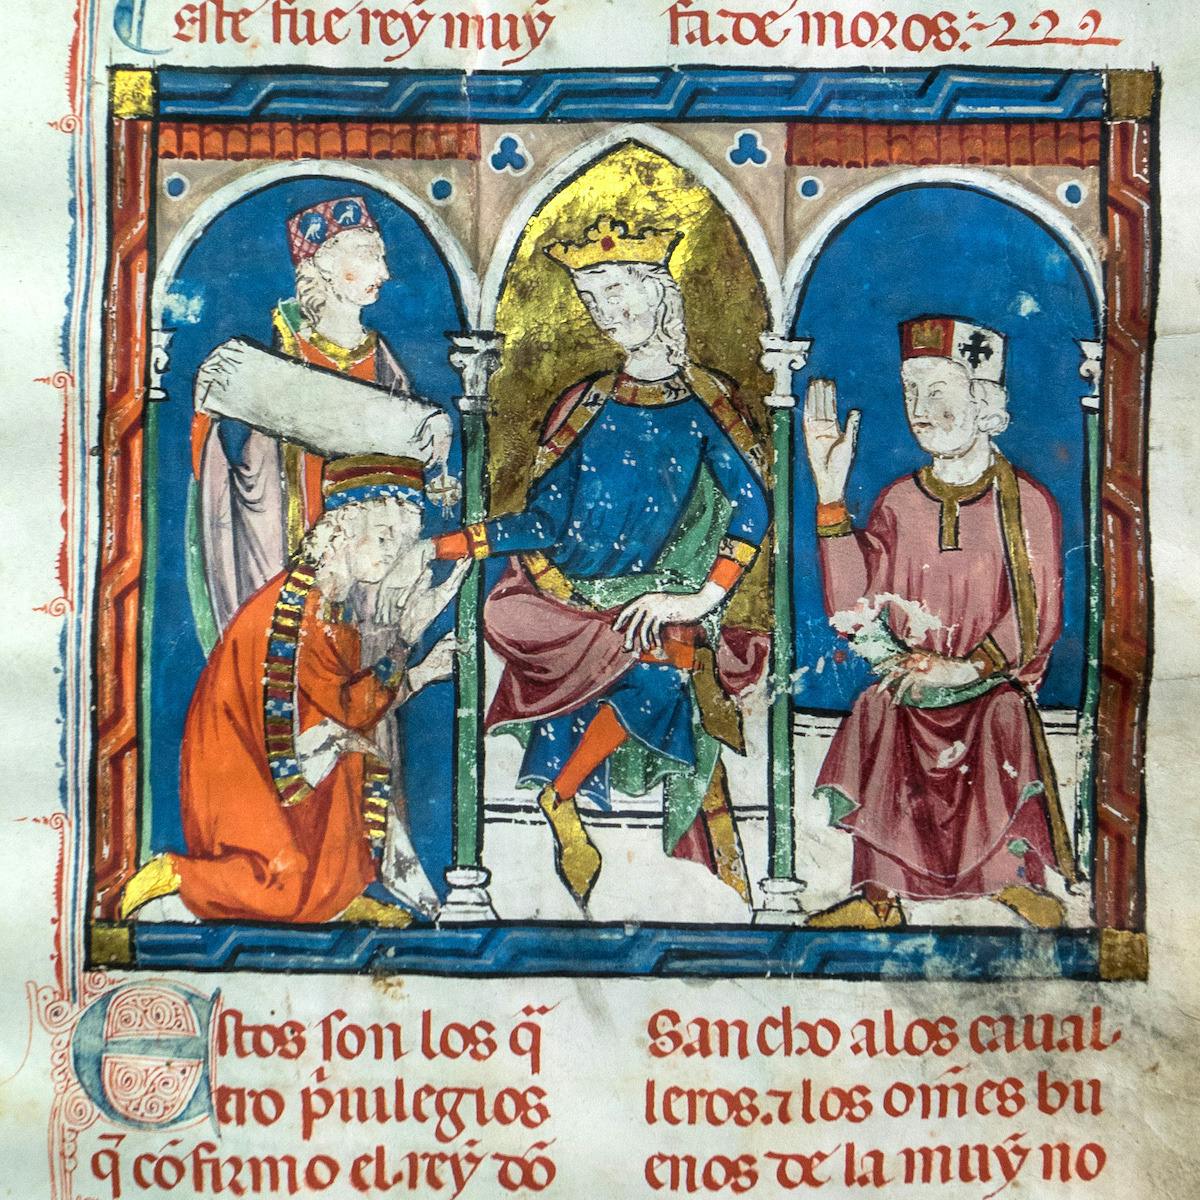 este fue rey muy
fa: de moros:
Estos son los q̄
tro p̄uilegios
q̄ cōfirmo el rey dō
Sancho a los caual-
leros. ⁊ los om̄es bu
enos de la muy no